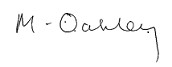 M - Oakley